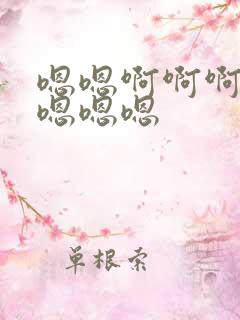 嗯嗯啊啊啊
嗯嗯嗯
单根索